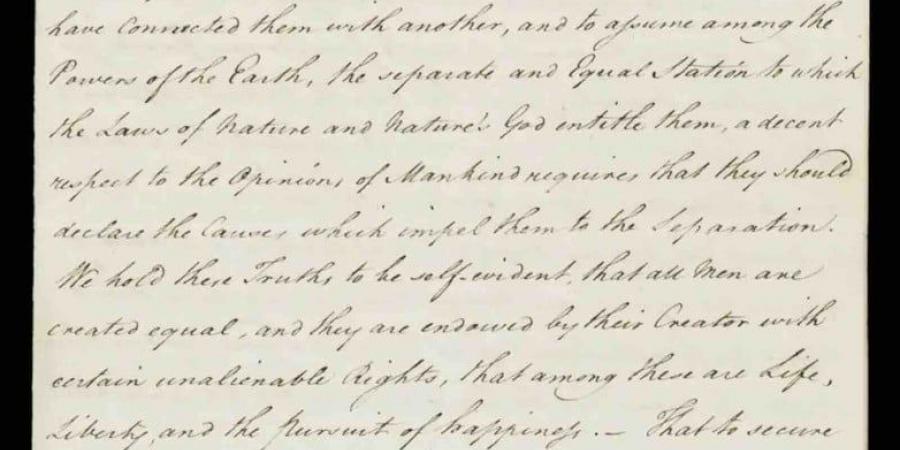 have connected them with another, and to assume among the
Powers of the Earth, the separate and Equal Station to which
the Laws of Nature and Nature's God entitle them, a decent
respect to the Opinions of Mankind requires that they should
declare the Causes which impel them to the Separation.
We hold these Truths to be self-evident, that all Men are
created equal, and they are endowed by their Creator with
certain unalienable Rights, that among these are Life,
Liberty, and the Pursuit of happiness. — That to secure